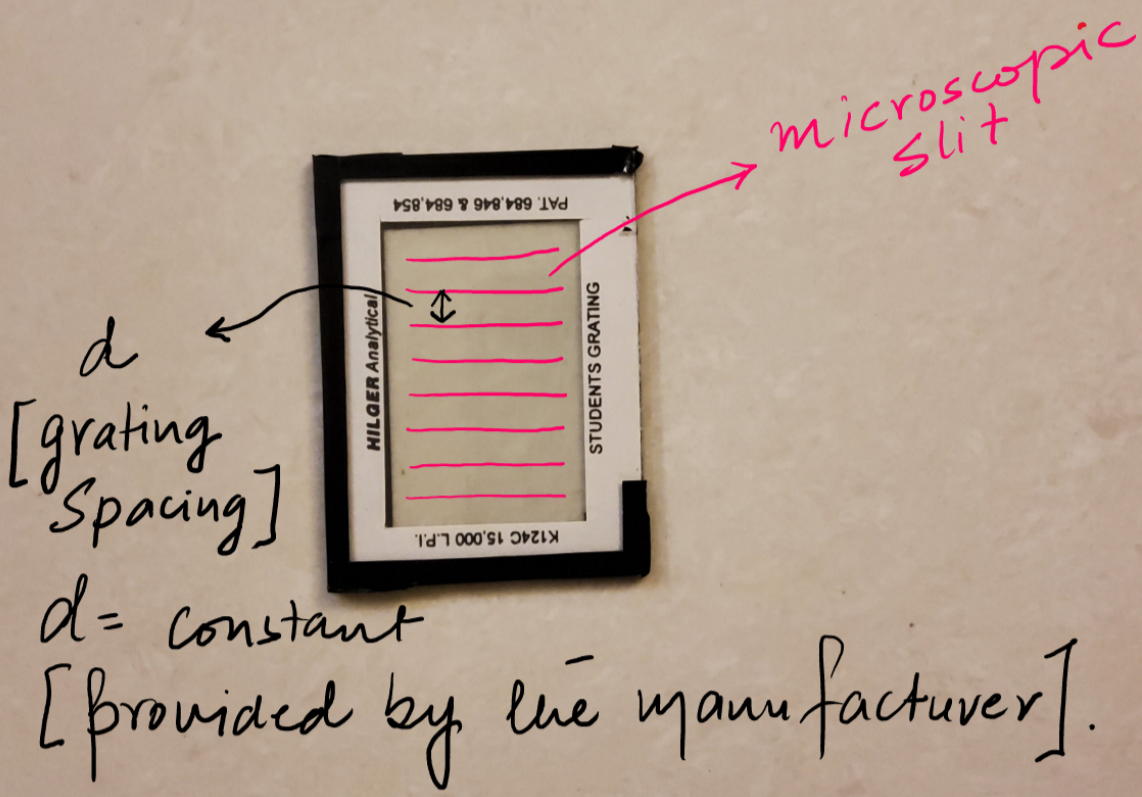 microscopic
slit
PAT. 684,846 & 684,854
HILGER Analytical
STUDENTS GRATING
K124C 15,000 L.P.I.
d
[grating
spacing]
d = constant
[provided by the manufacturer].